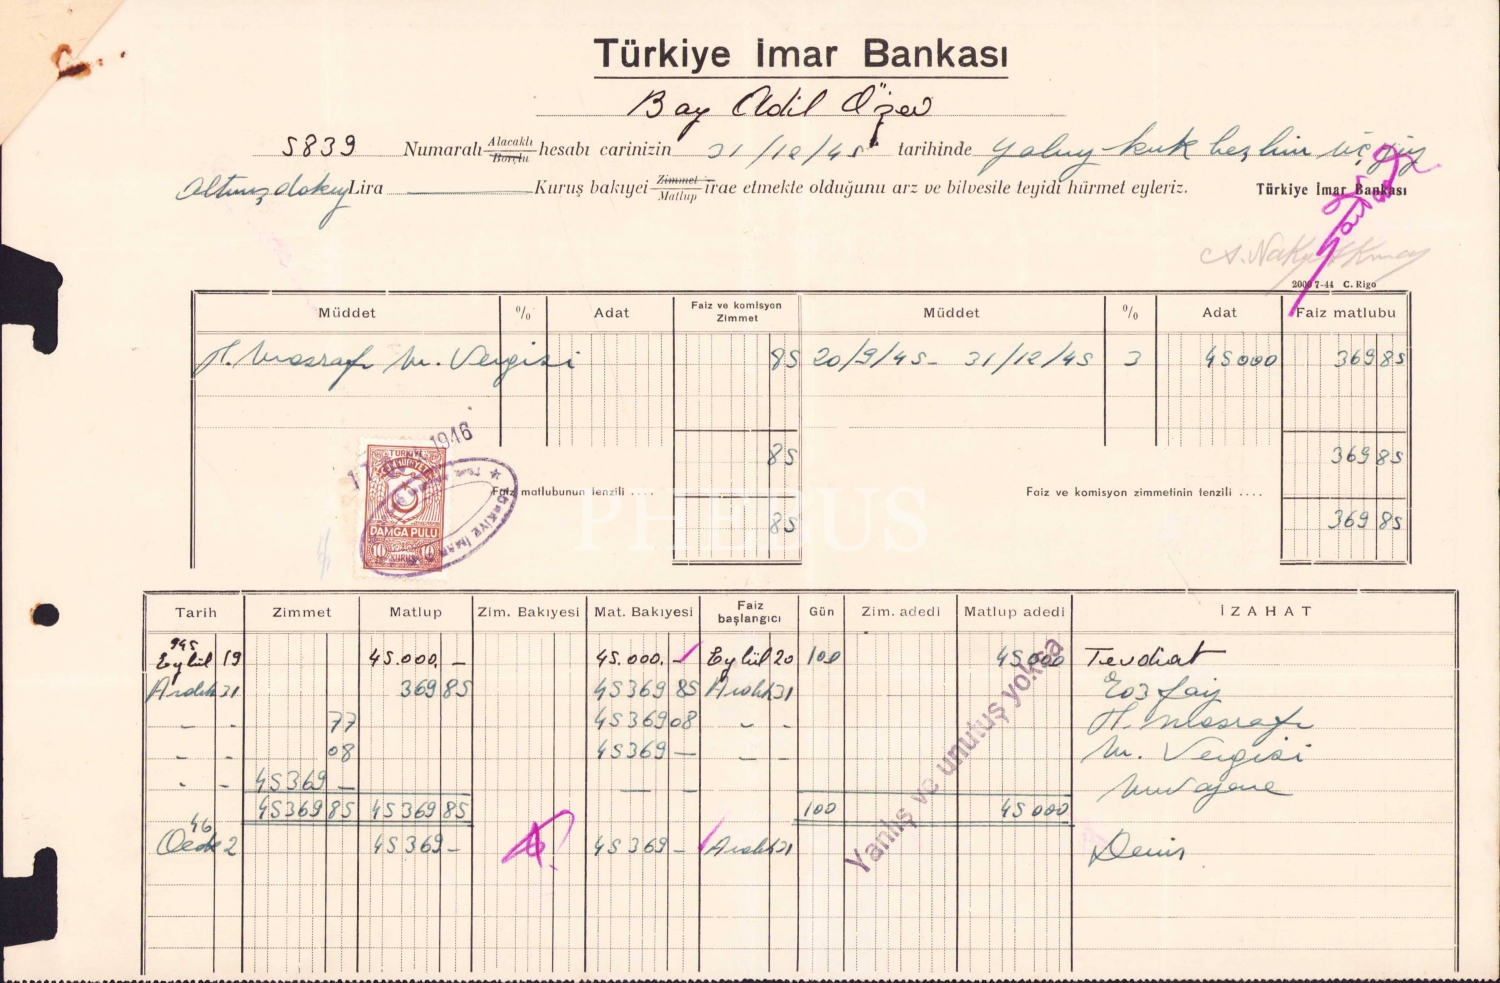 Türkiye İmar Bankası
Bay Adil Özev
5839 Numaralı Alacaklı Borçlu hesabı carinizin 31/12/45 tarihinde Yalnız kırk beş bin üç yüz
altmış dokuz Lira Kuruş bakıyei Zimmet Matlup irae etmekte olduğunu arz ve bilvesile teyidi hürmet eyleriz. Türkiye İmar Bankası
2000 7-44 C. Rigo
Müddet % Adat Faiz ve komisyon Zimmet Müddet % Adat Faiz matlubu
H. Masrafı M. Vergisi 85 20/9/45 - 31/12/45 3 45000 369 85
85 369 85
Faiz matlubunun tenzili .... Faiz ve komisyon zimmetinin tenzili ....
85 369 85
1946
TÜRKİYE
CUMHURİYETİ
DAMGA PULU
10 KURUŞ 10
TÜRKİYE İMAR
PHEBUS
Tarih Zimmet Matlup Zim. Bakıyesi Mat. Bakıyesi Faiz başlangıcı Gün Zim. adedi Matlup adedi İZAHAT
945
Eylül 19 45.000.- 45.000.- Eylül 20 100 45000 Tevdiat
Aralık 31 369 85 45369 85 Aralık 31 %3 faiz
- - 77 45369 08 - - H. Masrafı
- - 08 45369 - - - M. Vergisi
- - 45369 - - - Muvazene
45369 85 45369 85 100 45000
46
Ocak 2 45369 - 45369 - Aralık 31 Devir
Yanlış ve unutuş yoksa